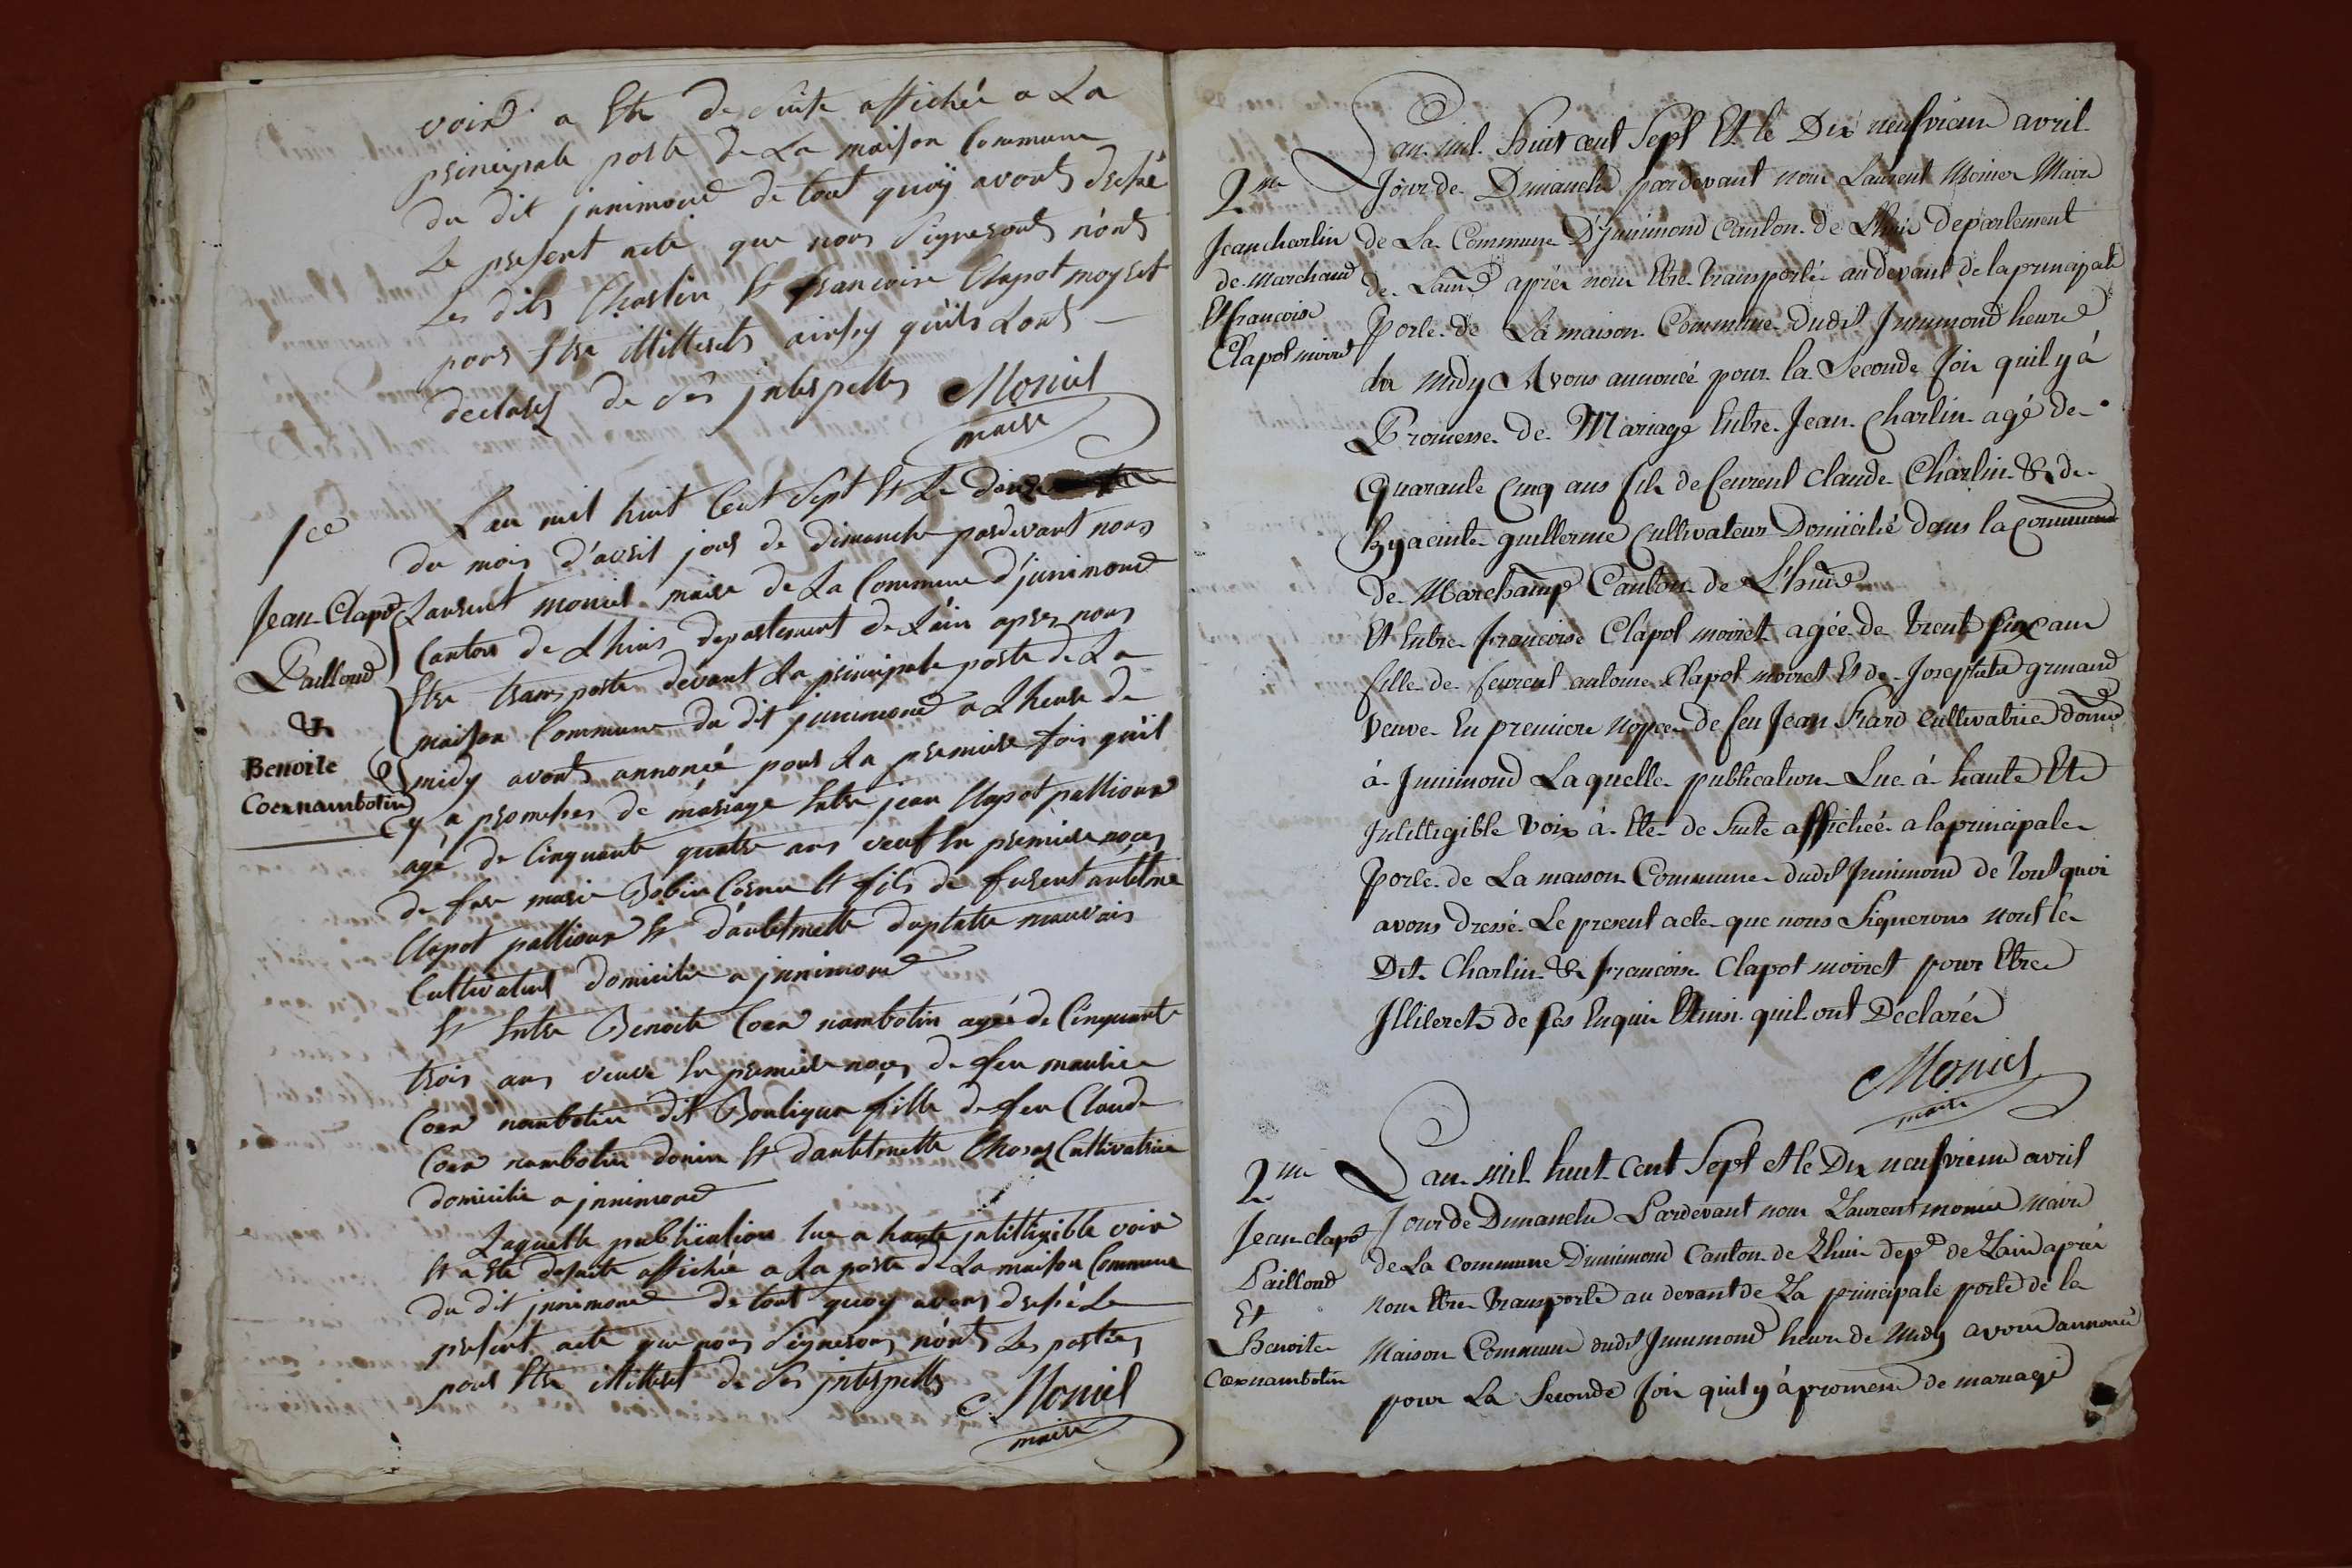 voix a Ete de suite affichée a La
principale porte de La maison Commune
du dit jnnimond de tout quoy avons dressé
Le present acte que nous signerons nonts
Les dits Charlin Et francoise Clapot moiret
pour Etre illitterets ainsy quils Lont
declarez de Ces jnterpelles Monier
maire
1ce
Lan mil huit Cent sept Et Le douze
du mois d'avril jour de dimanche pardevant nous
Jean Clapot Laurent monier maire de La Commune d'jnnimond
Canton de Lhuis departement de L'ain apres nous
Pailloud
Etre transporte devant La principale porte de La
&
maison Commune du dit jnnimond a Lheure de
Benoite
midy avons annoncé pour La premiere fois quil
Coernambotin
y a promesses de mariage Entre jean Clapot pallioux
agé de Cinquante quatre ans veuf En premiere noces
de feue marie Bobin Cornu Et fils de furent antelme
Clapot pallioux Et d'antelmette duplatre mauvais
Cultivateur domicilie a jnnimond
Et Entre Benoite Coer nambotin agée de Cinquante
trois ans veuve En premiere noces de feu maurice
Coer nambotin dit Bouligua fille de feu Claude
Coer nambotin donin Et dantelmette Charve Cultivatrice
domicilie a jnnimond
Laquelle publication lue a haute jntilligible voix
Et a Ete desuite affichée a La porte de La maison Commune
du dit jnnimond de tout quoy avons dressé Le
present acte que nous signerons nonts Les parties
pour Etre illitteret de Ces jnterpelles Monier
maire
Lan mil Huit cent Sept Et le Dix neufvieme avril
2me
Jour de Dimanche pardevant nous Laurent Monier Maire
Jean charlin
de La Commune D'Jnnimond Canton de Lhuis departement
de Marchand
de Lain après nous Etre transportée au devant de la principale
Et francoise
Porte de La maison Commune dudit Jnnimond heure
Clapot moiret
du midy Avons annoncé pour la Seconde fois quil y à
Promesse de Mariage Entre Jean Charlin agé de
Quarante Cinq ans fils de feurent Claude Charlin & de
hyacinte guillerme Cultivateur Domicilié dans la Commune
de Marchamp Canton de L'huis
Et Entre francoise Clapot moiret agée de trente six ans
fille de feurent antoine Clapot moiret Et de Josephte grinand
Veuve En premiere nopce de feu Jean Frard Cultivatrice domié
à Jnnimond Laquelle publication Lue à haute Et
Jntilligible Voix à Ete de Suite affichée a la principale
Porte de La maison Commune dudit Jnnimond de tout quoi
avons dressé Le present acte que nous Signerons nont le
Dit Charlin & francoise Clapot moiret pour Etre
Jlliterets de Ces Enquis Et Ainsi quil ont Declarés
Monier
maire
2me
Lan mil huit cent Sept et le Dix neufvieme avril
Jean clapot
Jour de Dimanche Pardevant nous Laurent monier Maire
Pailloud
de La Commune D'innimond Canton de Lhuis depd de Lain aprés
Et
nous Etre transporté au devant de La principale porte de la
Benoite
Maison Commune dudit Jnnimond heure de midy avons annoncé
Coernambotin
pour La Seconde fois quil y à promesse de mariage